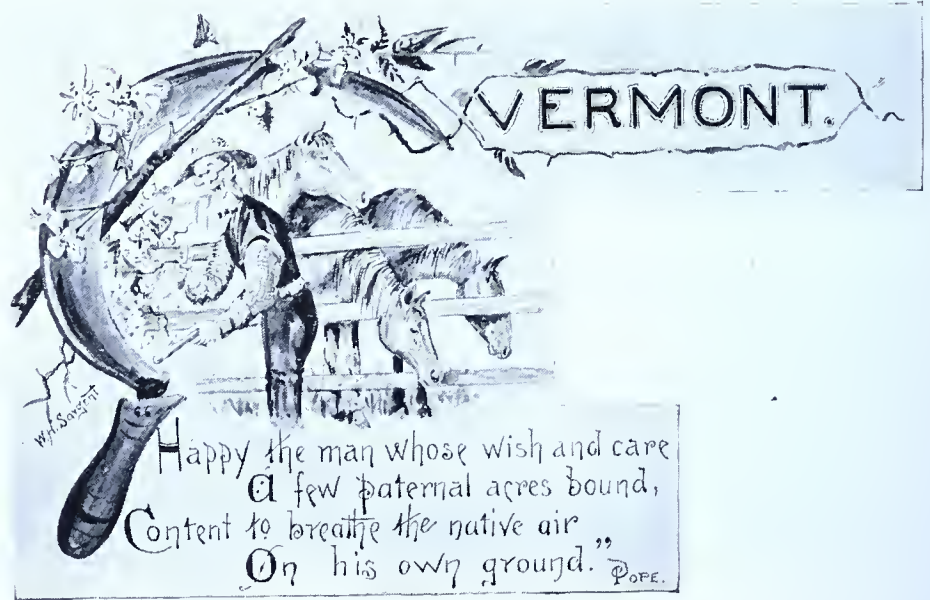 VERMONT.
W.H. Sargent
Happy the man whose wish and care
A few paternal acres bound,
Content to breathe the native air
On his own ground.”
POPE.